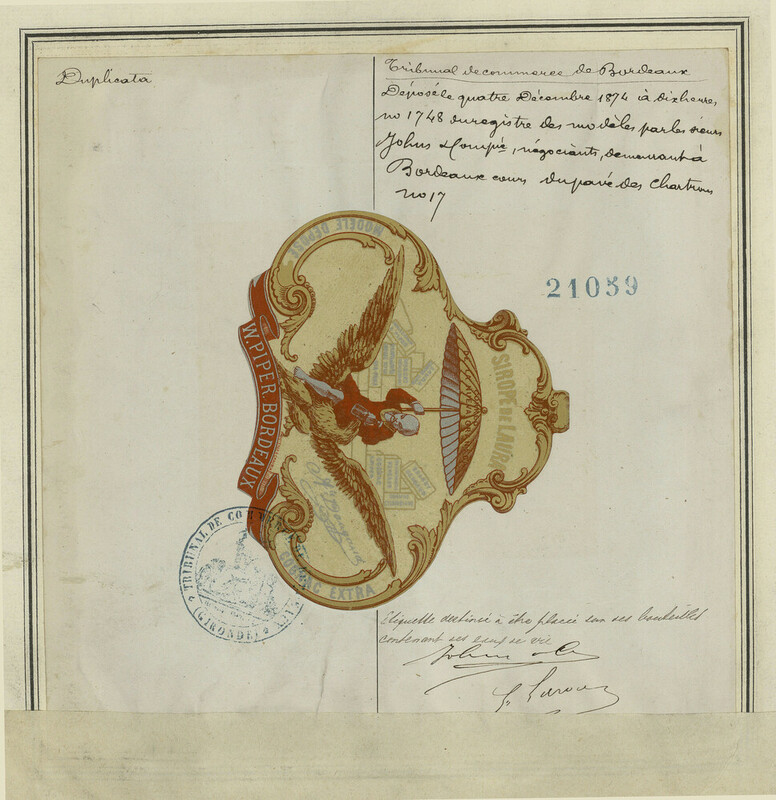 Duplicata
Tribunal de commerce de Bordeaux
Déposé le quatre Décembre 1874 à dix heures
no 1748 du registre des modèles par les sieurs
Johns & Compie, négociants, demeurant à
Bordeaux cours du pavé des Chartrons
no 17
21059
MODÈLE DÉPOSÉ
W. PIPER. BORDEAUX
SIROPE DE
COGNAC EXTRA
TRIBUNAL DE COM
(GIRONDE)
Etiquette destinée à être placée sur ses bouteilles
contenant ses eaux de vie
Johns & Co